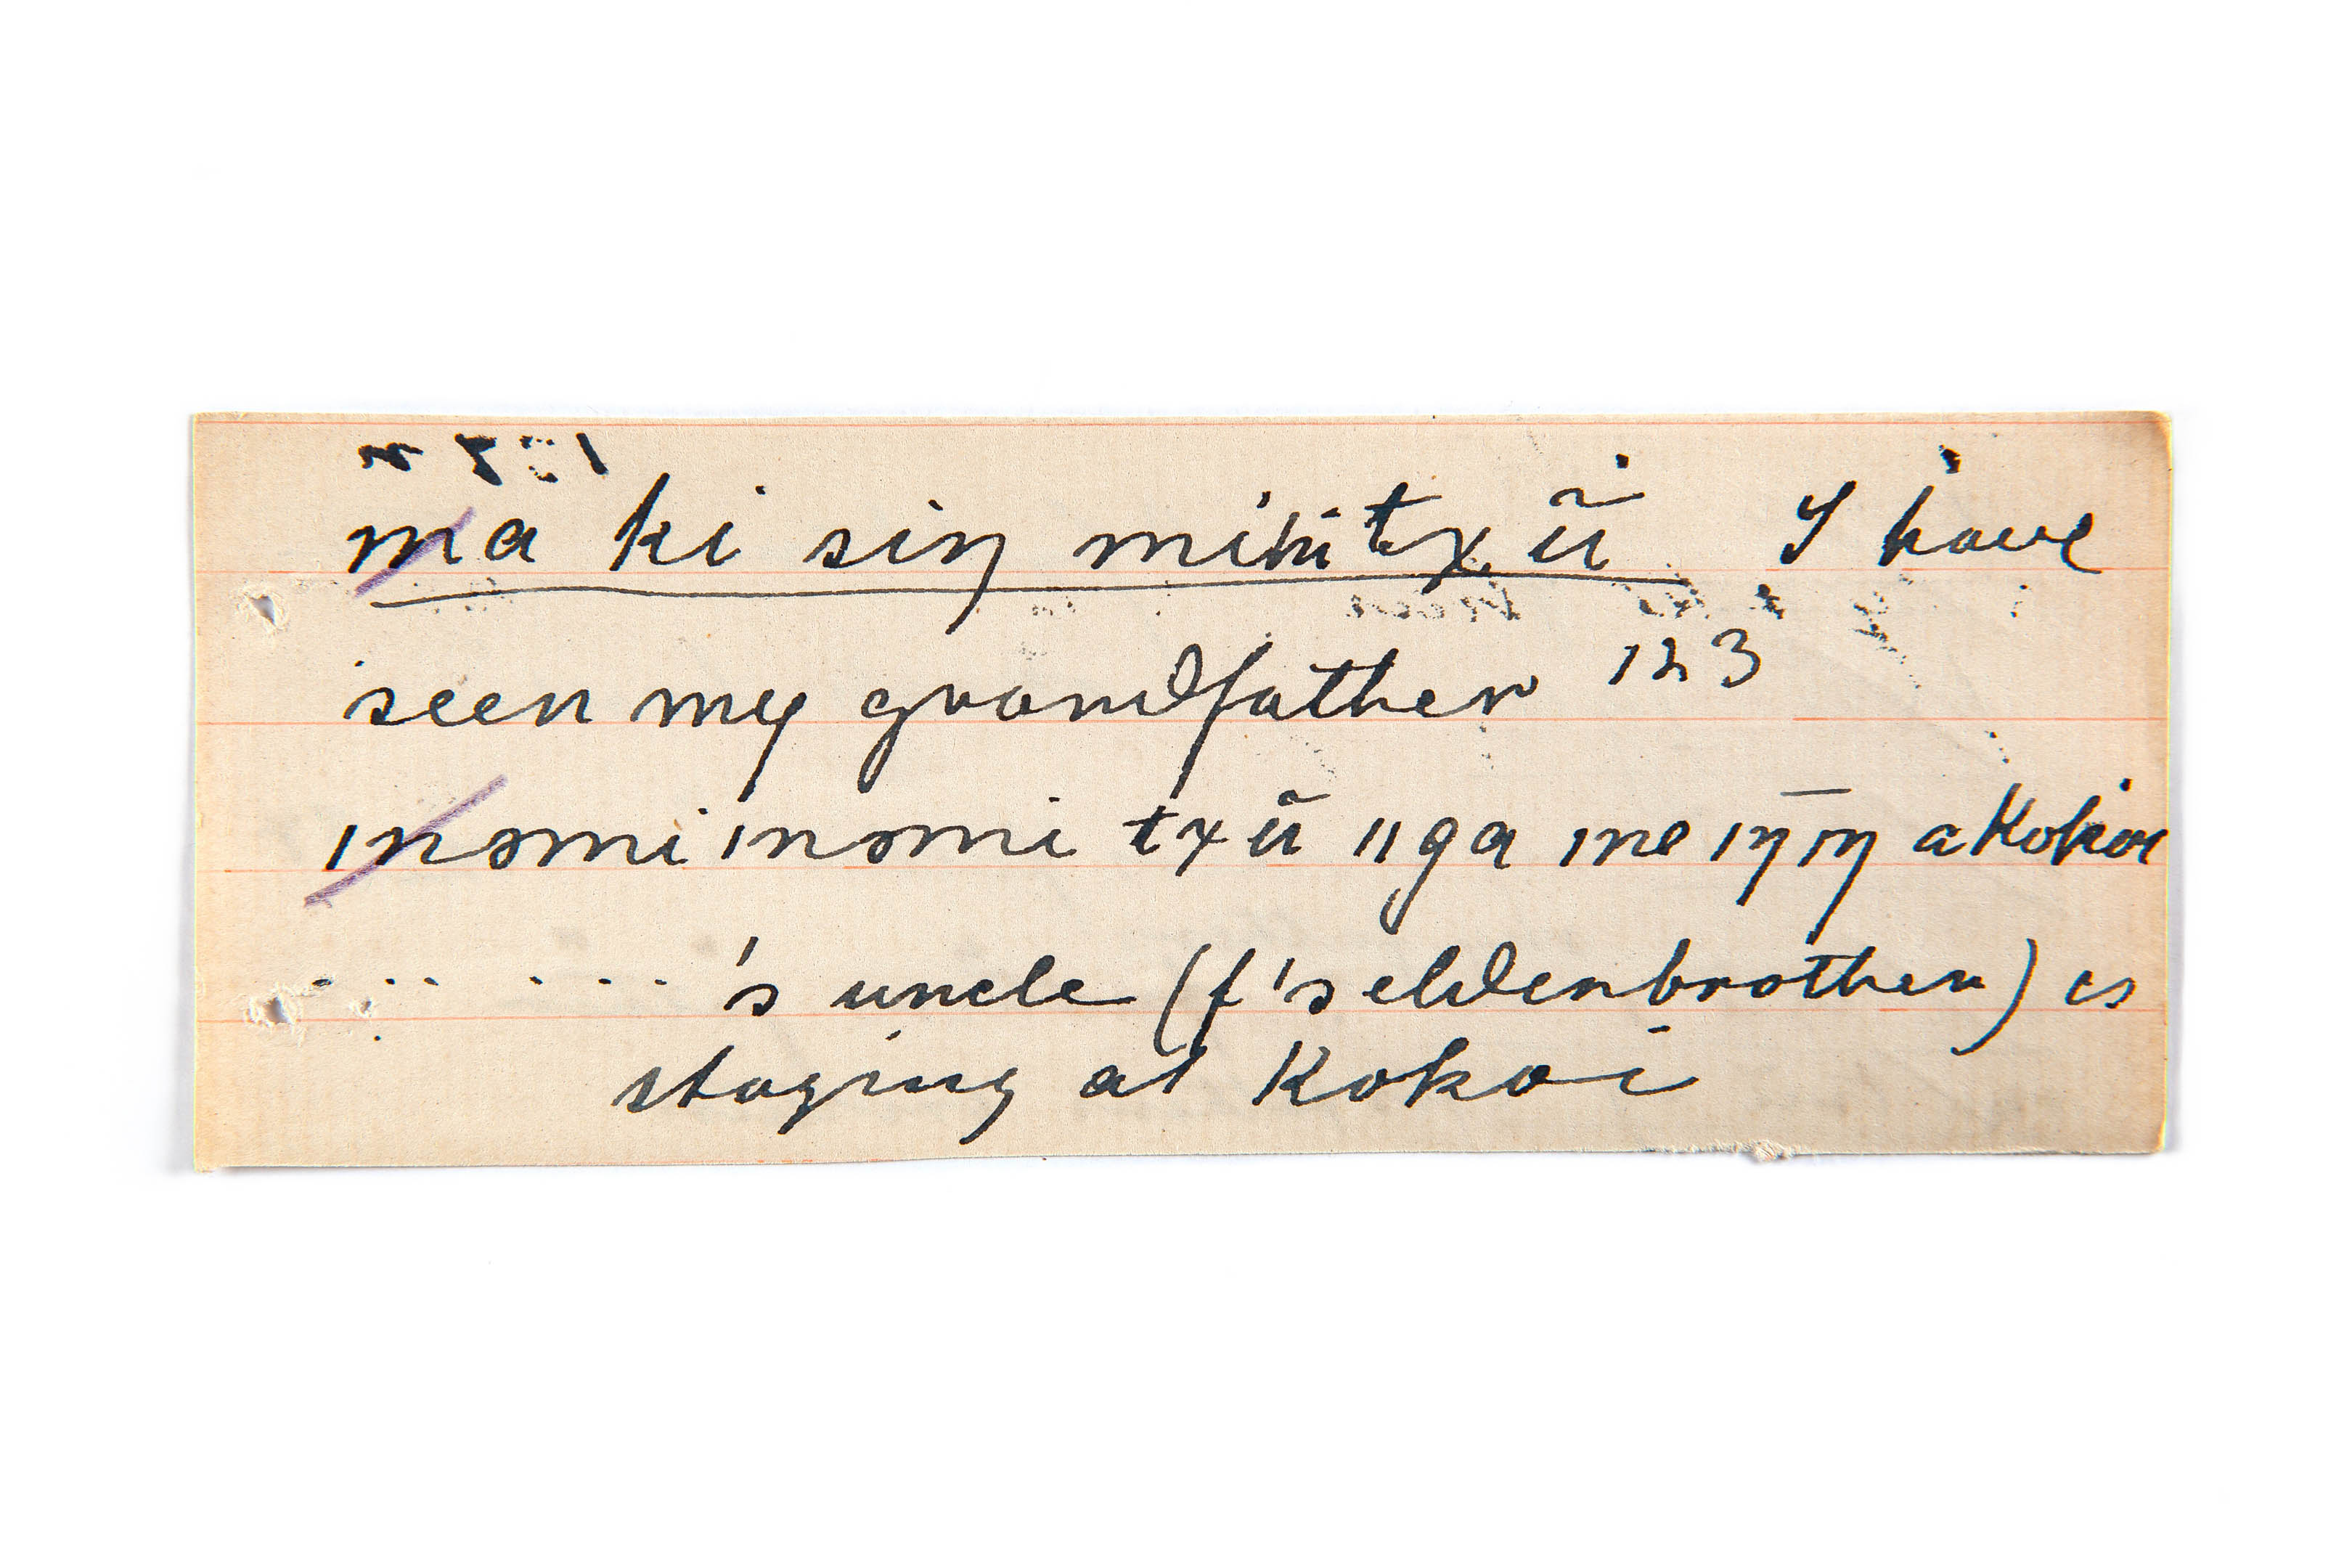 ma ki siŋ mihitxũ I have
seen my grandfather 123
ınəmi ınəmi txũ ııga ıne ıŋıŋ a Kokoı
. .. . . . . 's uncle (f's elder brother) is
staying at Kokoi